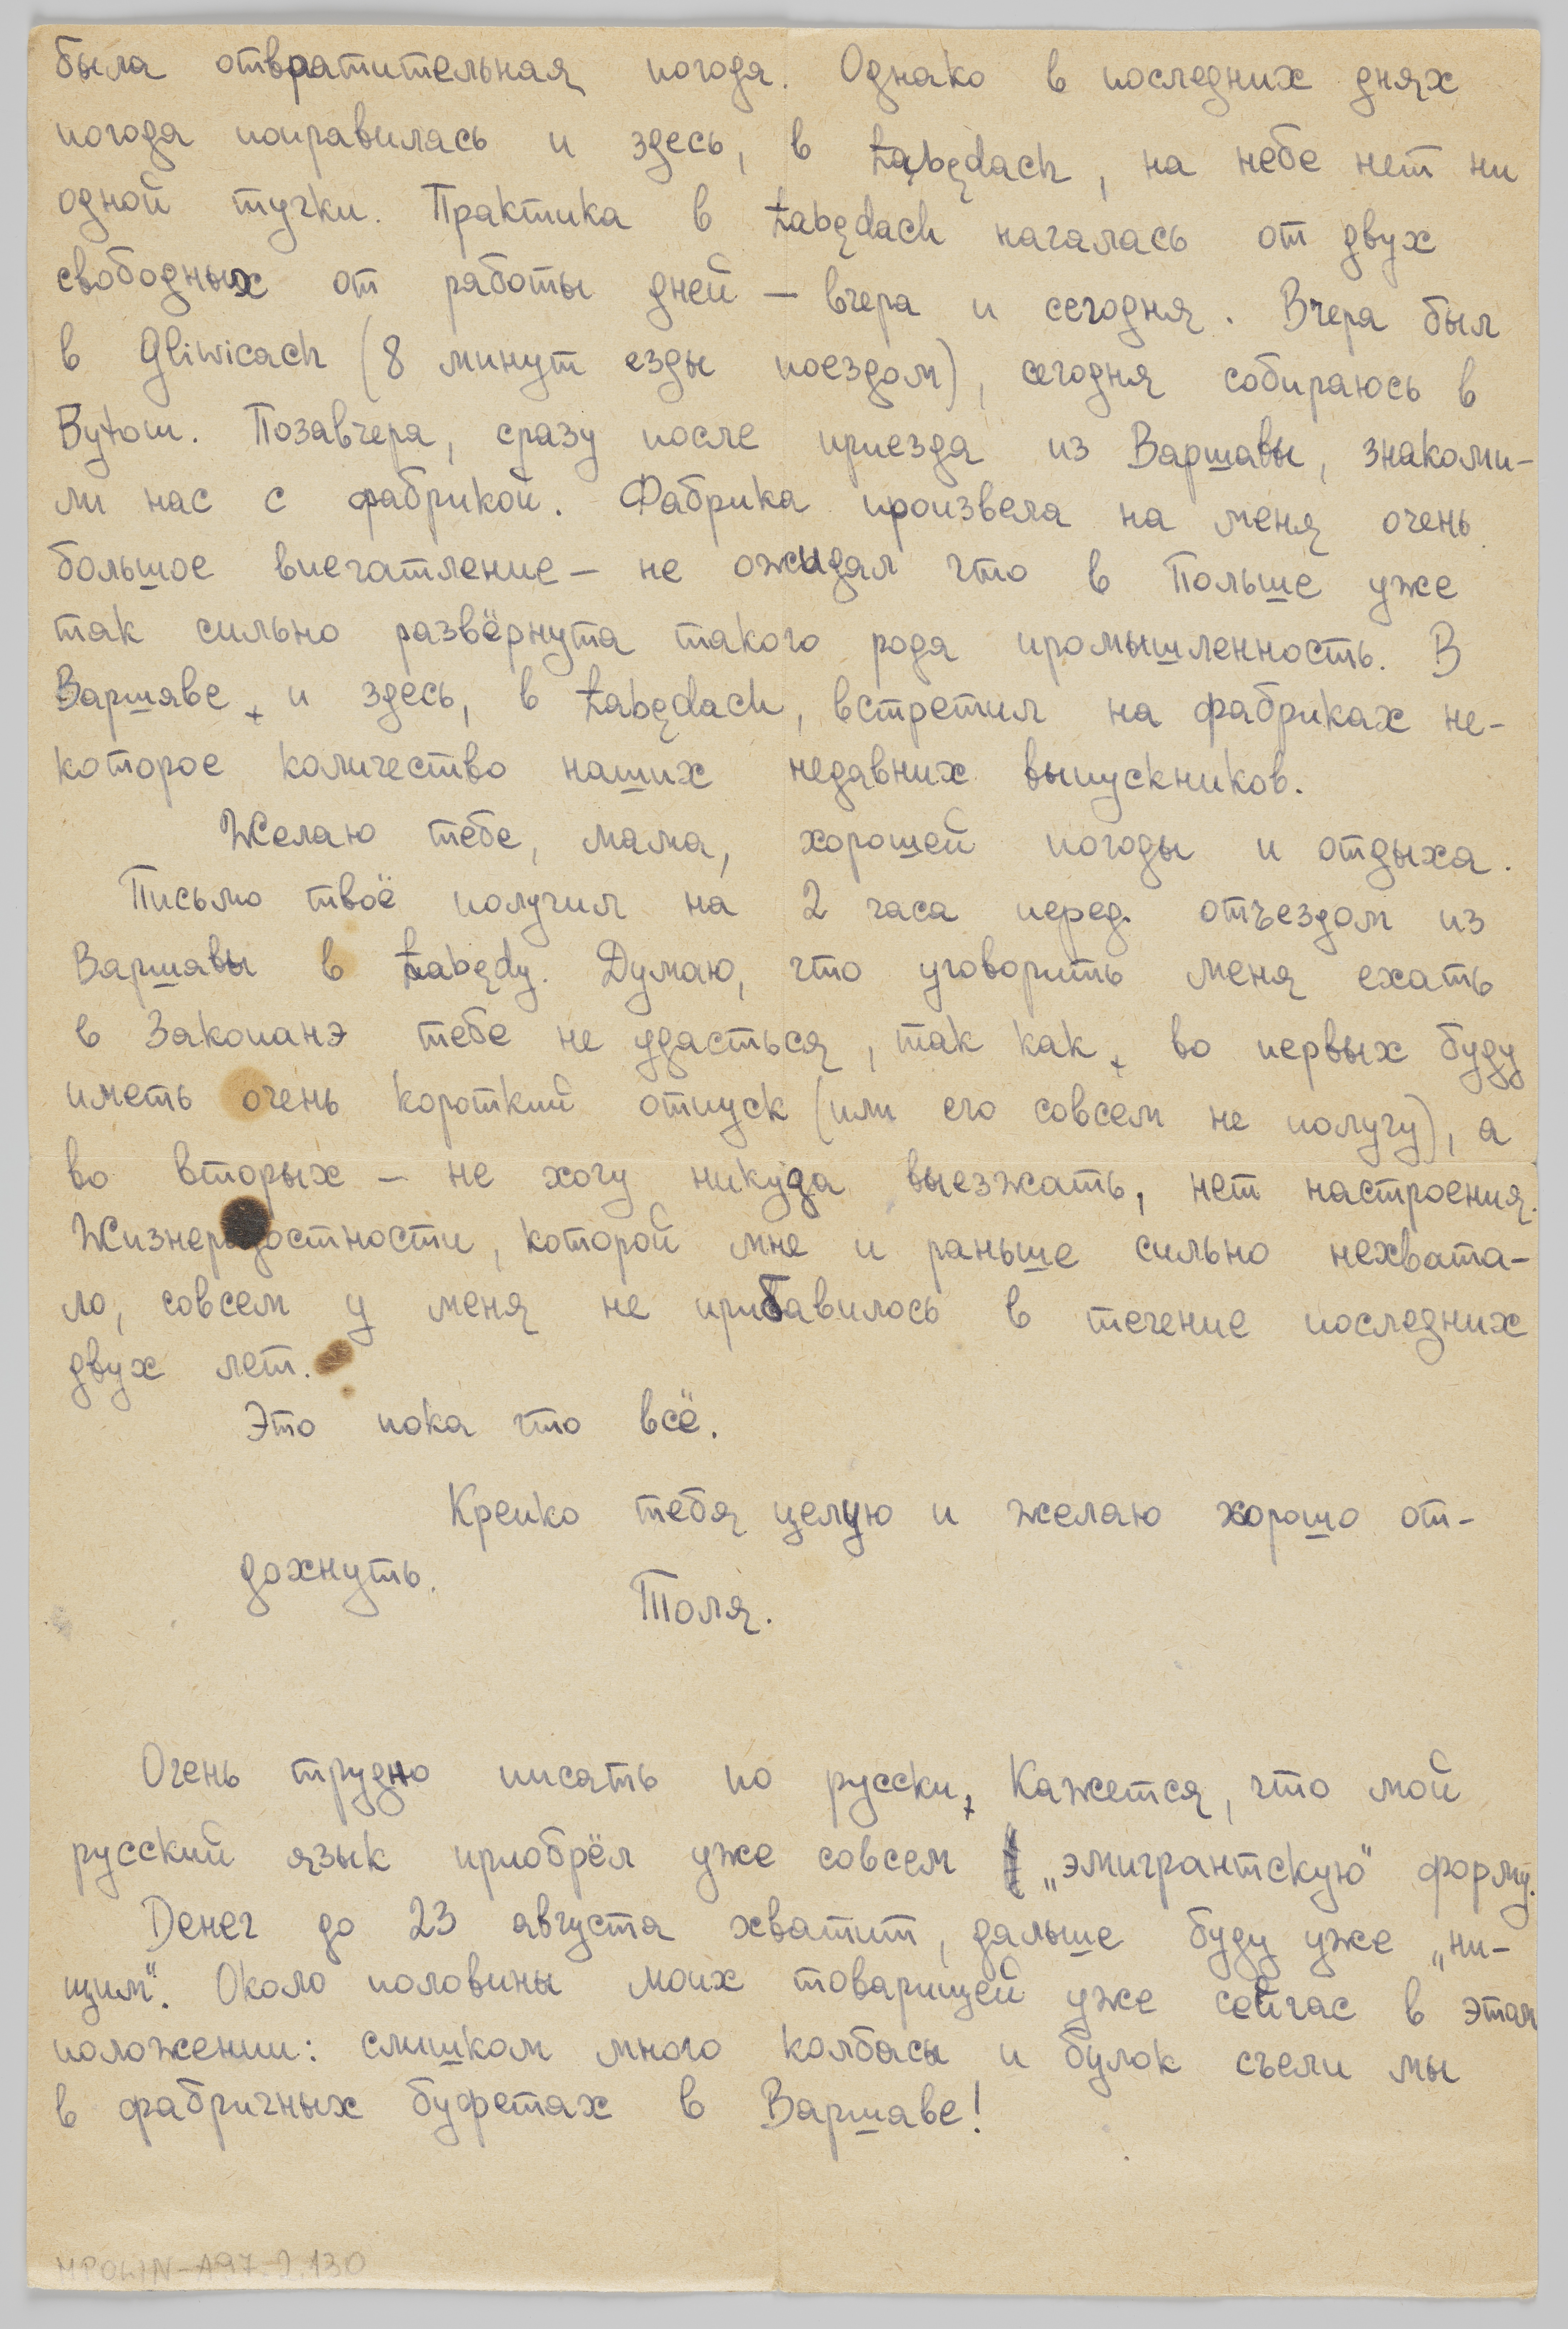 была отвратительная погода. Однако в последних днях
погода поправилась и здесь, в Łabędach, на небе нет ни
одной тучки. Практика в Łabędach началась от двух
свободных от работы дней – вчера и сегодня. Вчера был
в Gliwicach (8 минут езды поездом), сегодня собираюсь в
Bytom. Позавчера, сразу после приезда из Варшавы, знакоми-
ли нас с фабрикой. Фабрика произвела на меня очень
большое впечатление – не ожидал что в Польше уже
так сильно развёрнута такого рода промышленность. В
Варшаве, и здесь, в Łabędach, встретил на фабриках не-
которое количество наших недавних выпускников.
Желаю тебе, мама, хорошей погоды и отдыха.
Письмо твоё получил на 2 часа перед отъездом из
Варшавы в Łabędy. Думаю, что уговорить меня ехать
в Закопанэ тебе не удасться, так как, во первых буду
иметь очень короткий отпуск (или его совсем не получу), а
во вторых – не хочу никуда выезжать, нет настроения.
Жизнерадостности, которой мне и раньше сильно нехвата-
ло, совсем у меня не прибавилось в течение последних
двух лет.
Это пока что всё.
Крепко тебя целую и желаю хорошо от-
дохнуть.
Толя.
Очень трудно писать по русски, Кажется, что мой
русский язык приобрёл уже совсем „эмигрантскую" форму.
Денег до 23 августа хватит, дальше буду уже „ни-
щим". Около половины моих товарищей уже сейчас в этом
положении: слишком много колбасы и булок съели мы
в фабричных буфетах в Варшаве!
MPOLIN-A97.2.130